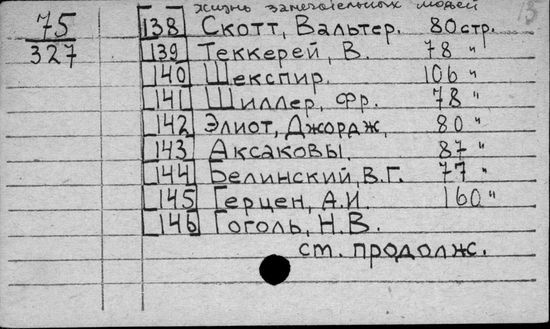 жизнь замечательных людей 15
75
327
138 Скотт, Вальтер. 80 стр.
139 Теккерей, В. 78 "
140 Шекспир. 106 "
141 Шиллер, Фр. 78 "
142 Элиот, Джордж, 80 "
143 Аксаковы. 87 "
144 Белинский, В.Г. 77 "
145 Герцен, А.И. 160 "
146 Гоголь, Н.В.
ст. продолж.